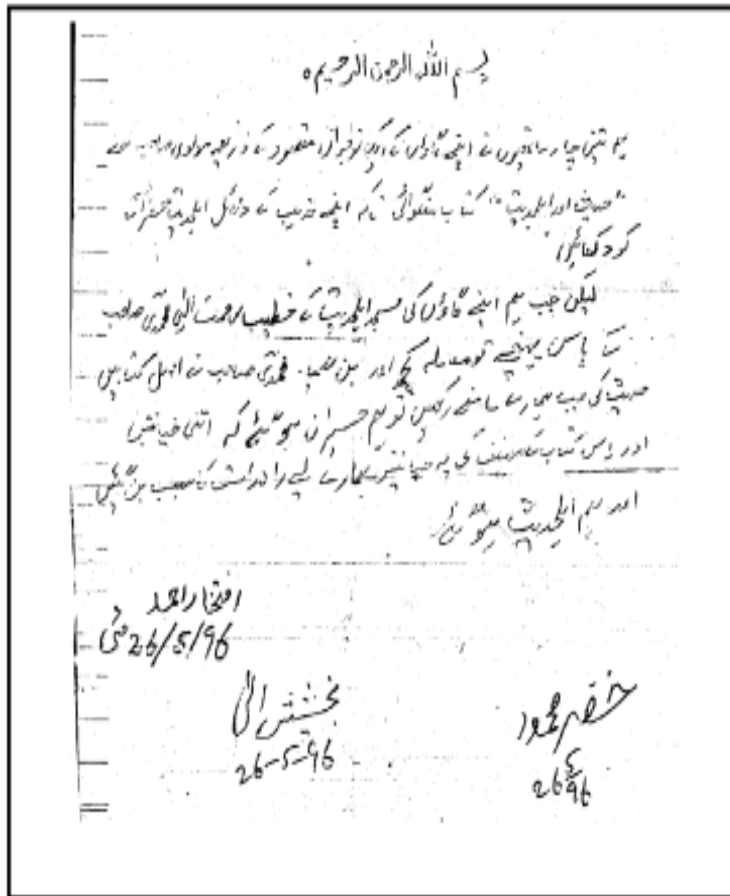 بسم اللہ الرحمن الرحیم ہ
ہم تین چار ساتھیوں نے اپنے گاؤں کے ایک نوجوان مقصود کے ذریعہ مولوی صاحب سے
"حدیث اور اہلحدیث" کتاب منگوائی تاکہ اپنے مذہب کے دلائل اہلحدیث حضرات
کو دکھائیں
لیکن جب ہم اپنے گاؤں کی مسجد اہلحدیث کے خطیب رحمت الہی صاحب
کے پاس پہنچے تو معاملہ کچھ اور بن گیا۔ صاحب نے اصل کتابیں
حدیث کی جب ہمارے سامنے رکھیں تو ہم حیران ہو گئے کہ اتنی خیانتیں
اور اس کتاب کے مصنف کی یہ خیانتیں ہمارے لیے راہ راست کا سبب بن گئیں
اور ہم اہلحدیث ہو گئے
افتخار احمد
26/5/96 مئی
بخشش الہی
26-5-96
خضر محمود
26 5 96